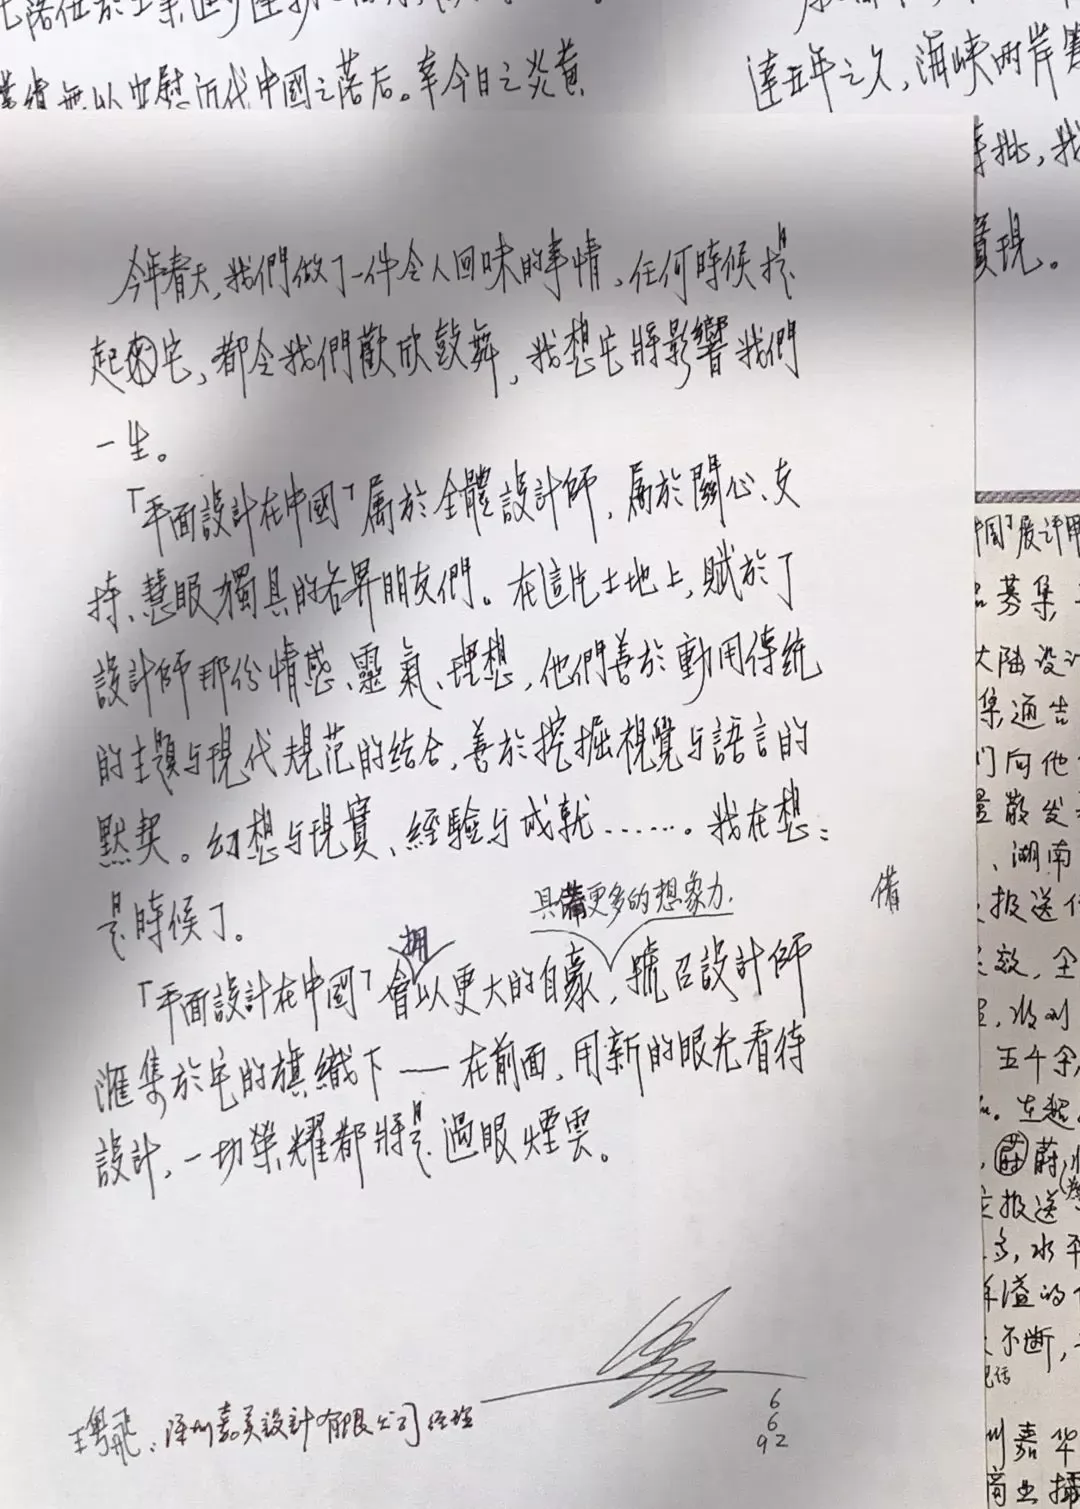 業績無以安慰近代中國之落后。幸今日之炎黄
達五年之久，海峽兩岸
批，我
實現。
今年春天，我們做了一件令人回味的事情，任何時候提
起來它，都令我們歡欣鼓舞，我想它將影響我們
一生。
「平面設計在中國」屬於全體設計師，屬於關心、支
持、慧眼獨具的各界朋友們。在這片土地上，賦於了
設計師那份情感、靈氣、理想，他們善於動用傳統
的主題与現代規范的结合，善於挖掘視覺与語言的
默契。幻想与現實、經驗与成就……。我在想：
是時候了。
具備更多的想象力.
備
拥
「平面設計在中國」會以更大的自豪，號召設計師
匯集於它的旗織下——在前面，用新的眼光看待
設計，一切榮耀都將是過眼煙雲。
6
6
92
王粤飛：深圳嘉美設計有限公司经理
中国」展评
募集，
大陆设计
集通告
们向他
量散发
、湖南
报送
效，全
五千余
蔚
报送
，水平
洋溢的
不断，
圳嘉华
商业